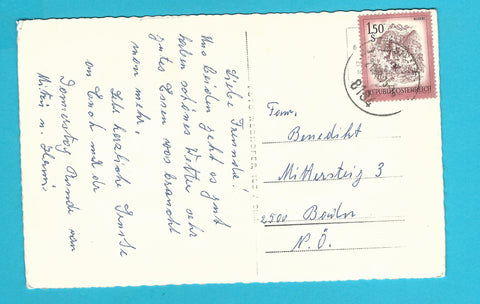 Liebe Freunde!
Uns beiden geht es gut
haben schönes Wetter sehr
gutes Essen was braucht
man mehr.
Sehr herzliche Grüße
an Euch und die
Donnerstag Runde von
Mitzi u. Hermi
1,50
S
REPUBLIK ÖSTERREICH
Fam.
Benedikt
Mittersteig 3
2500 Baden
N.Ö.